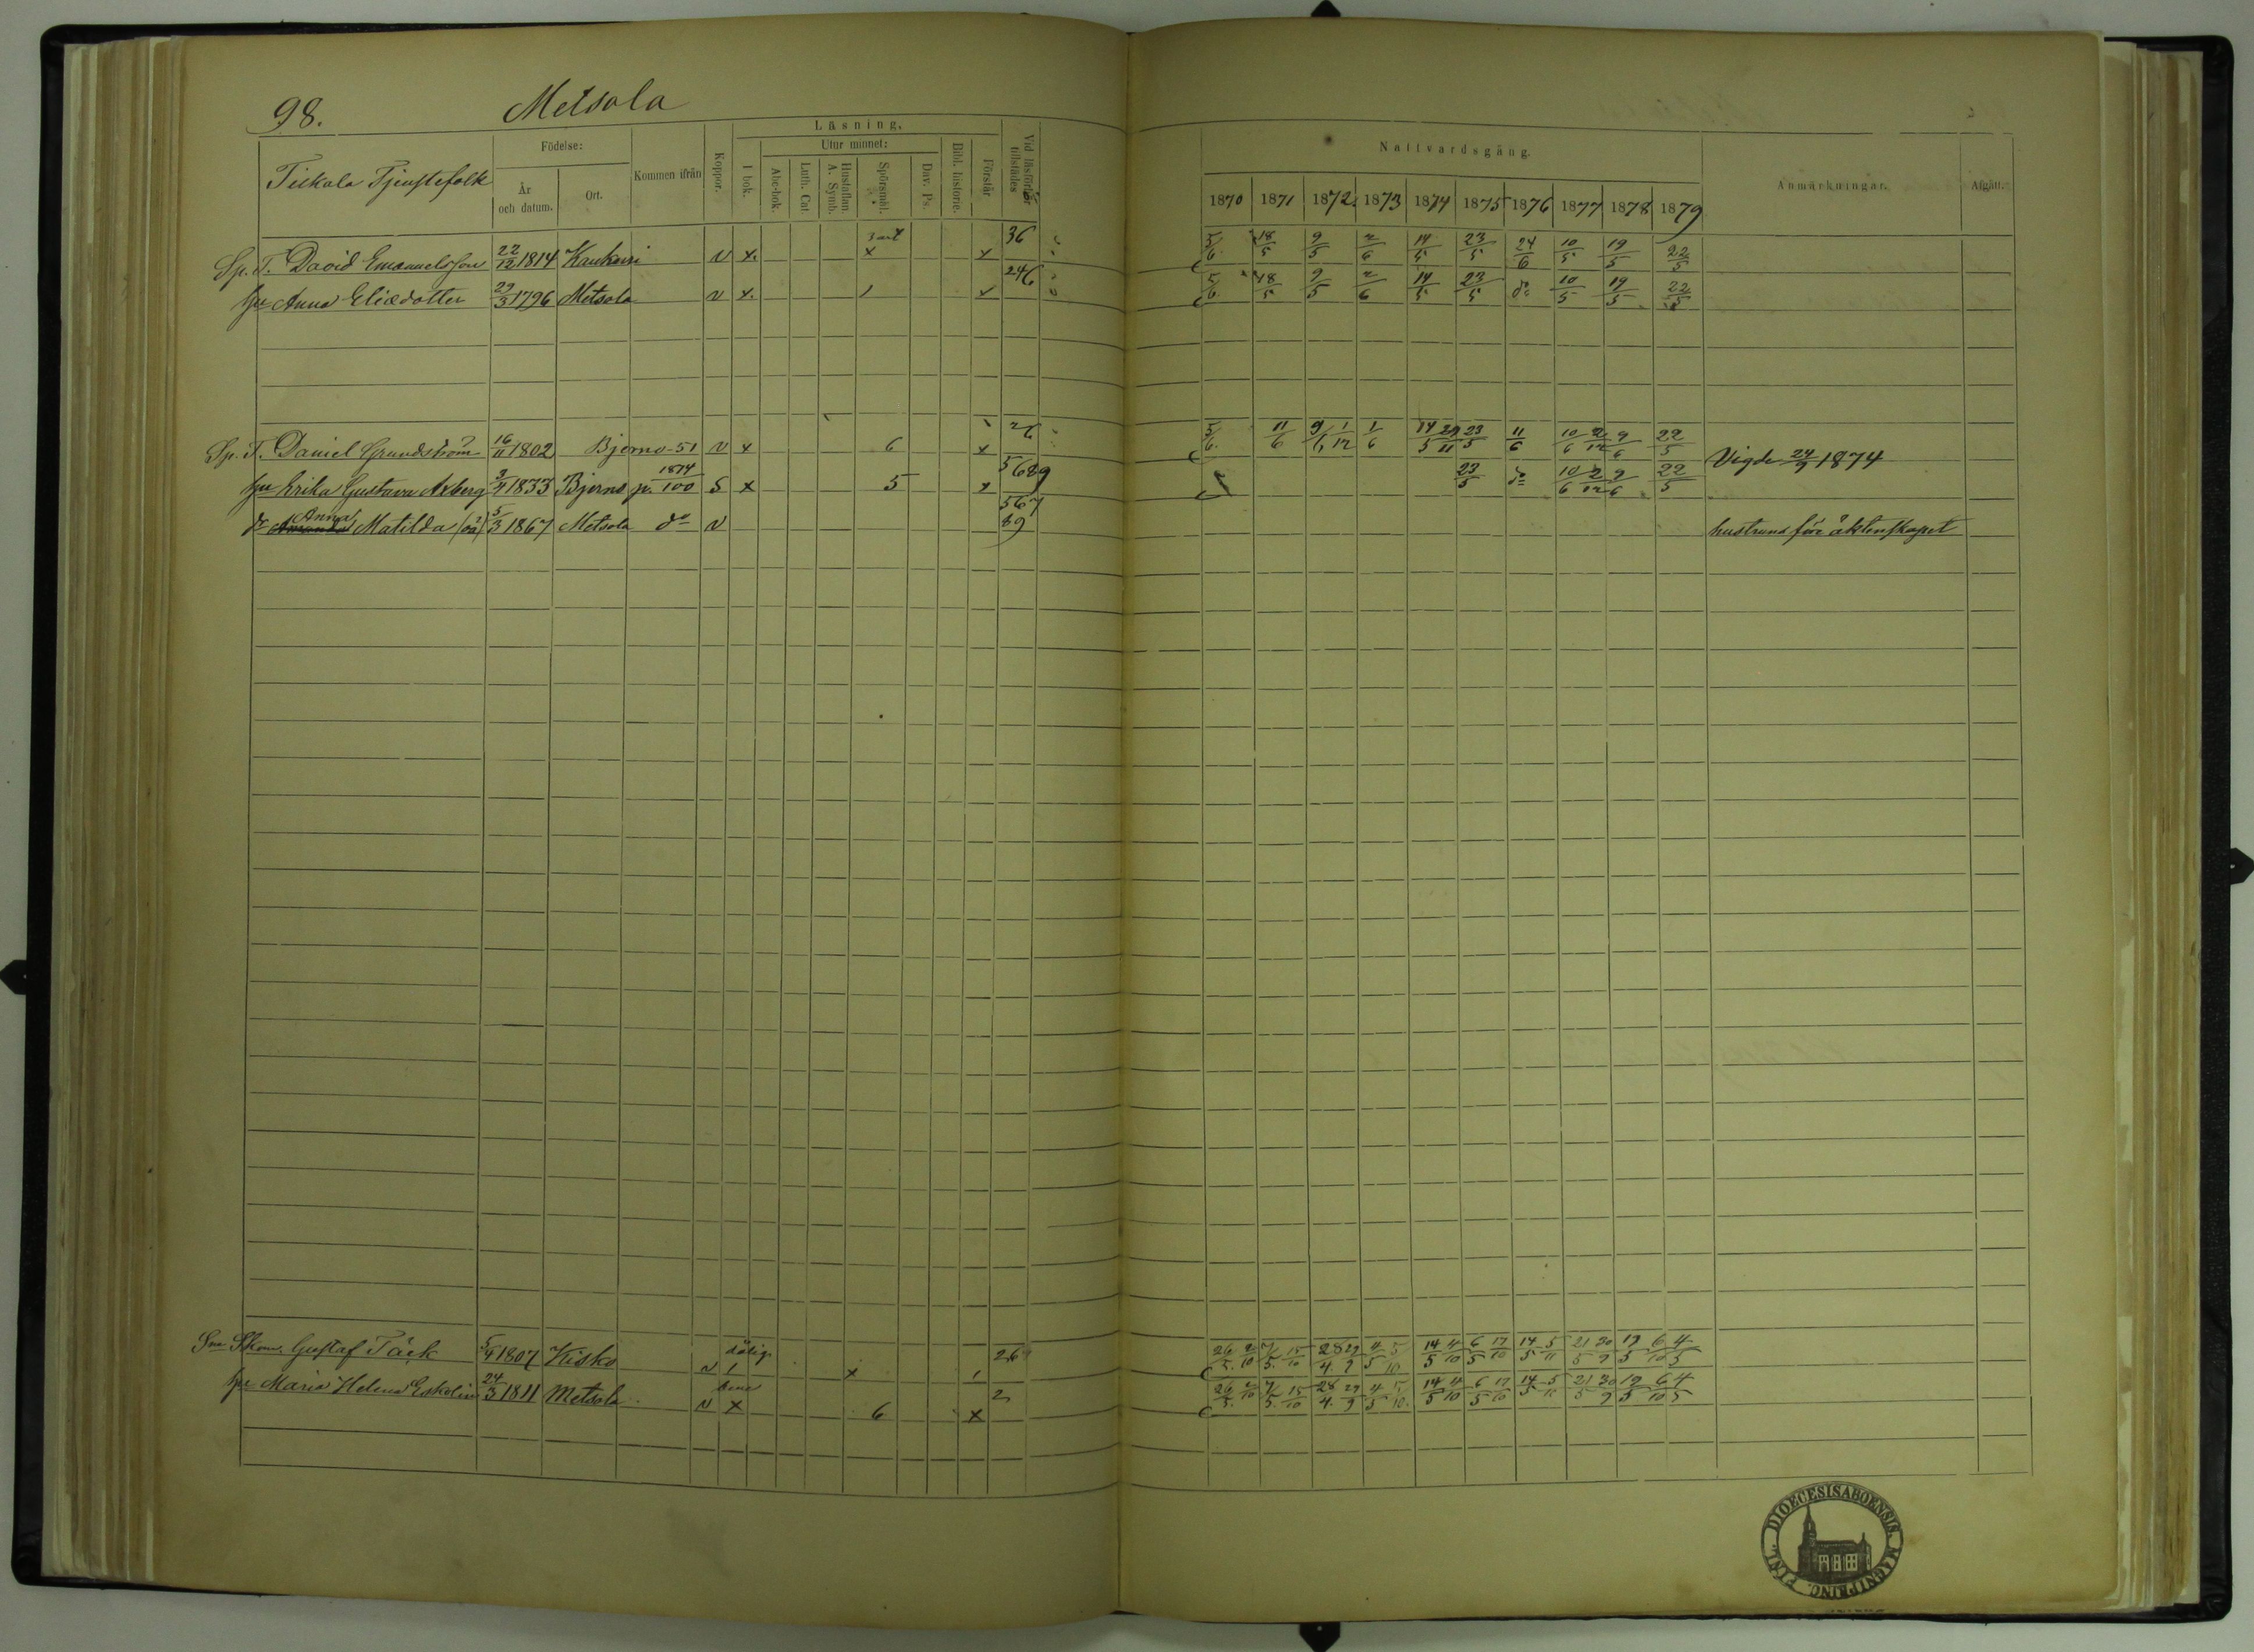 98.
Metsola
Tickala Tjenstefolk
Födelse:
År
och datum.
Ort.
Kommen ifrån
Koppor.
Läsning.
I bok.
Utur minnet:
Abc-bok.
Luth. Cat.
Hustaflan.
A. Symb.
Spörsmål.
Dav. Ps.
Bibl. historie.
Förstår
Vid läsförhör
tillstädes
Nattvardsgång.
1870 1871 1872 1873 1874 1875 1876 1877 1878 1879
Anmärkningar.
Afgått.
Sp. T. David Emanuelsson 22/12 1814 v x. x x 36 5/6. 18/5 9/5 2/6 14/5 23/5 24/6 10/5 19/5 22/5
hu Anna Eliædotter 29/3 1796 Metsola v x. 1 x 246 5/6. 18/5 9/5 2/6 14/5 23/5 do 10/5 19/5 22/5
Sp. T. Daniel Grundström 16/11 1802 Bjerno-51 v x 6 x 26 5/6. 11/6 9/6 1/12 1/6 14/5 29/11 23/5 11/6 10/6 2/12 9/6 22/5
hu Erika Gustava Axberg 3/9 1833 Bjerno p. 1874/100 S x 5 x 5689 23/5 do 10/6 2/12 9/6 22/5 Vigde 24/9 1874
dr Anna Matilda (oä) 5/3 1867 Metsola do v 567
89 hustruns före äktenskapet
Gustaf Täck 5/9 1807 Kisko v dålig 1 x 1 26 26/5. 2/10 7/5. 15/10 28/4. 29/9 4/5 5/10 14/5 4/10 6/5 17/10 14/5 5/11 21/5 30/9 19/5 6/10 4/5
hu Maria Helena Eskolin 24/3 1811 Metsola v x 6 x 2 26/5. 2/10 7/5. 15/10 28/4. 29/9 4/5 5/10. 14/5 4/10 6/5 17/10 14/5 5/11 21/5 30/9 19/5 6/10 4/5
DIOECESIS ABOENSIS. MAGNI PRINC. FINL.